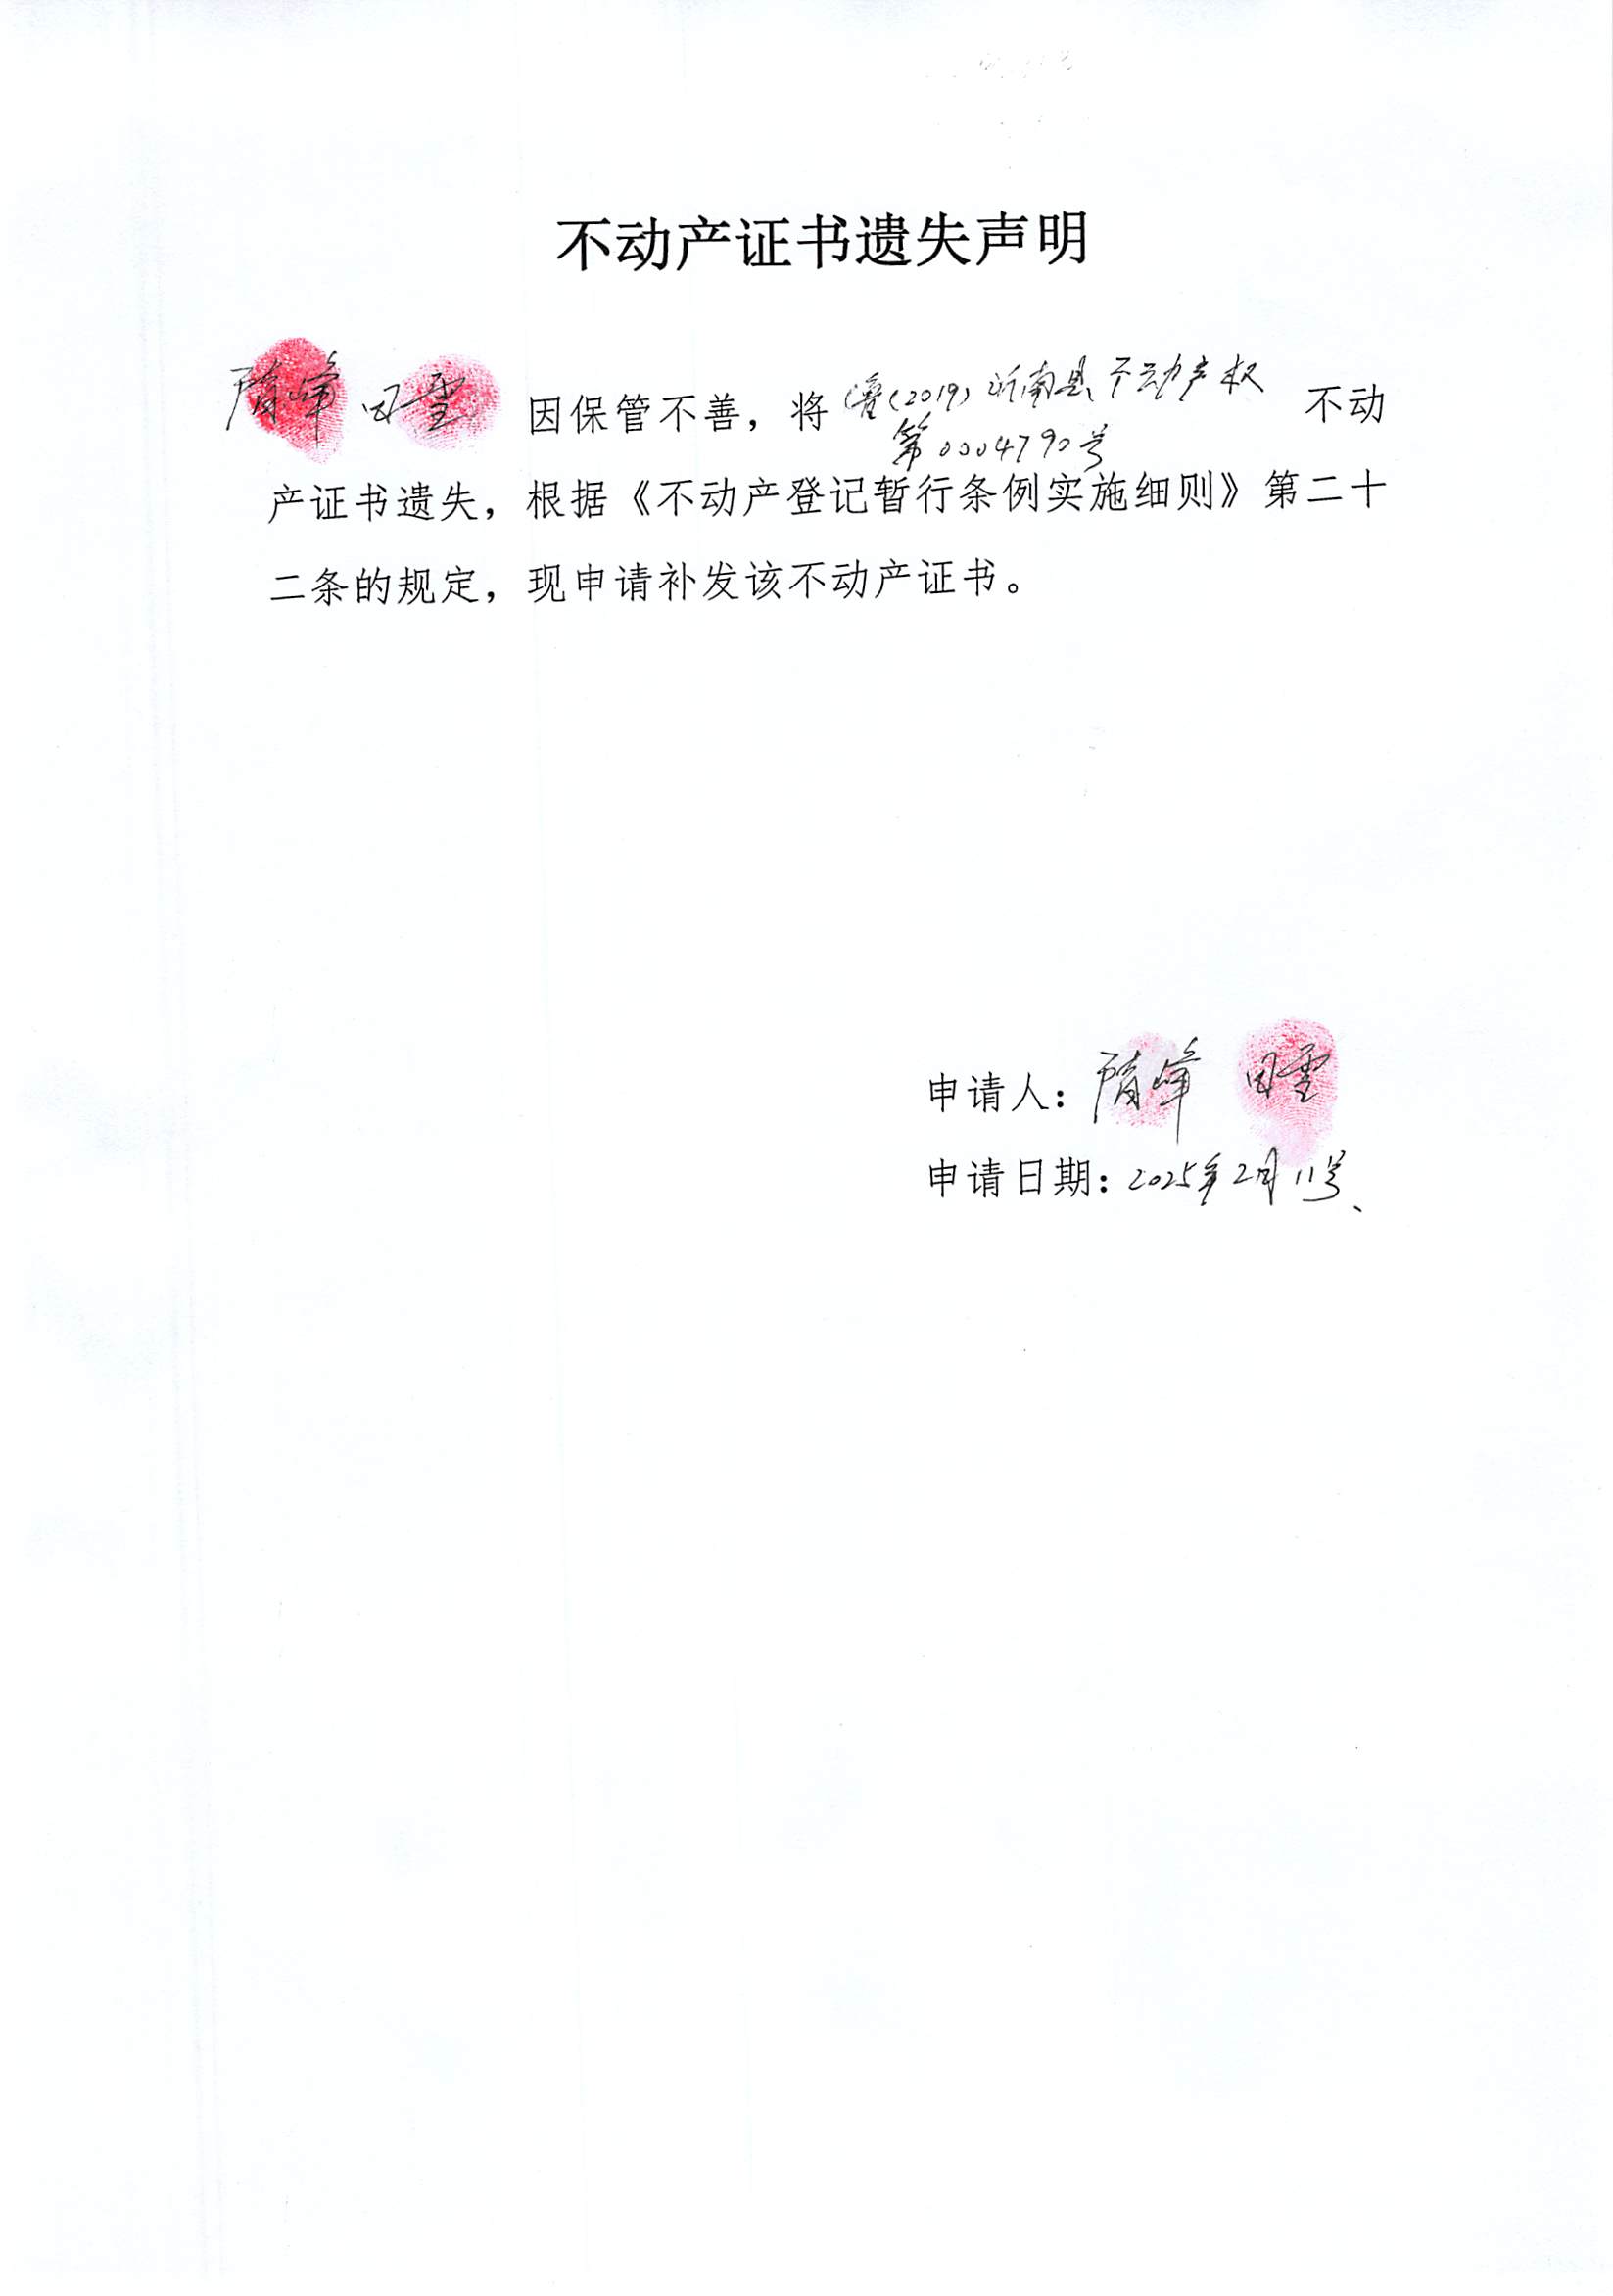 不动产证书遗失声明
隋峰 田雪 因保管不善，将鲁（2019）沂南县不动产权 不动
第0004790号
产证书遗失，根据《不动产登记暂行条例实施细则》第二十
二条的规定，现申请补发该不动产证书。
申请人：隋峰 田雪
申请日期：2025年2月11号、